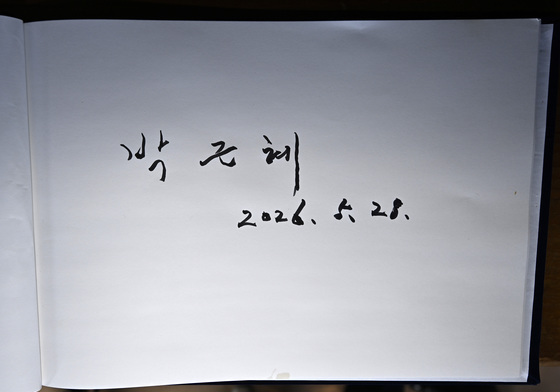 박근혜
2026. 5. 28.